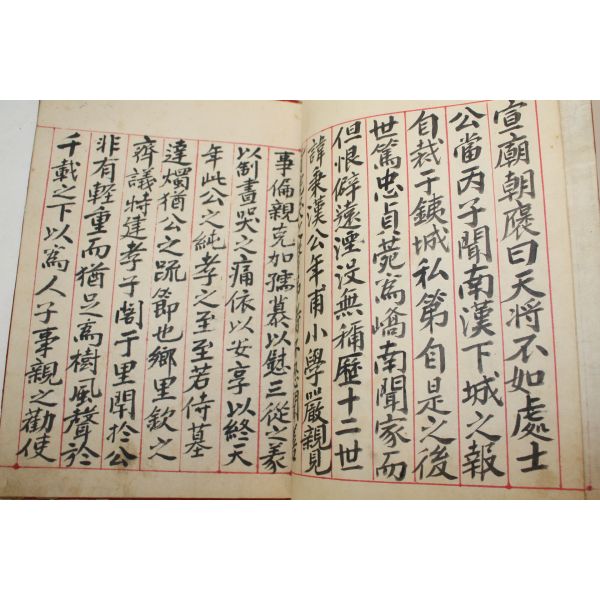 宣廟朝褒曰天將不如處士
公當丙子聞南漢下城之報
自裁于鐵城私第自是之後
世篤忠貞菀爲嶠南聞家而
但恨僻遠湮没無稱歷十二世
諱秉漢公年甫小學嚴親見
事倫親克加孺慕以慰三從之義
以劃晝哭之痛依以安享以終天
年此公之純孝之至至若侍墓
達燭猶公之疏節也鄉里欽之
齊議特建孝子閣于里閈於公
非有輕重而猶足爲樹風聲於
千載之下以爲人子事親之勸使